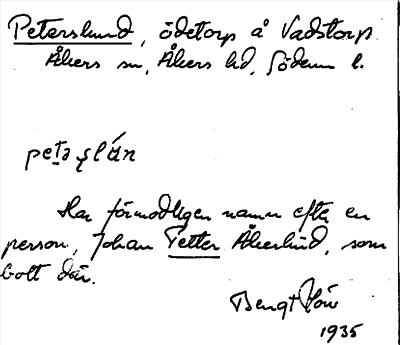 Peterslund, ödetorp å Vadstorp
Åkers sn, Åkers hd, Södem l.
petạʂlán
Har förmodligen namn efter en
person, Johan Petter Åkerlind, som
bott där.
Bengt
1935